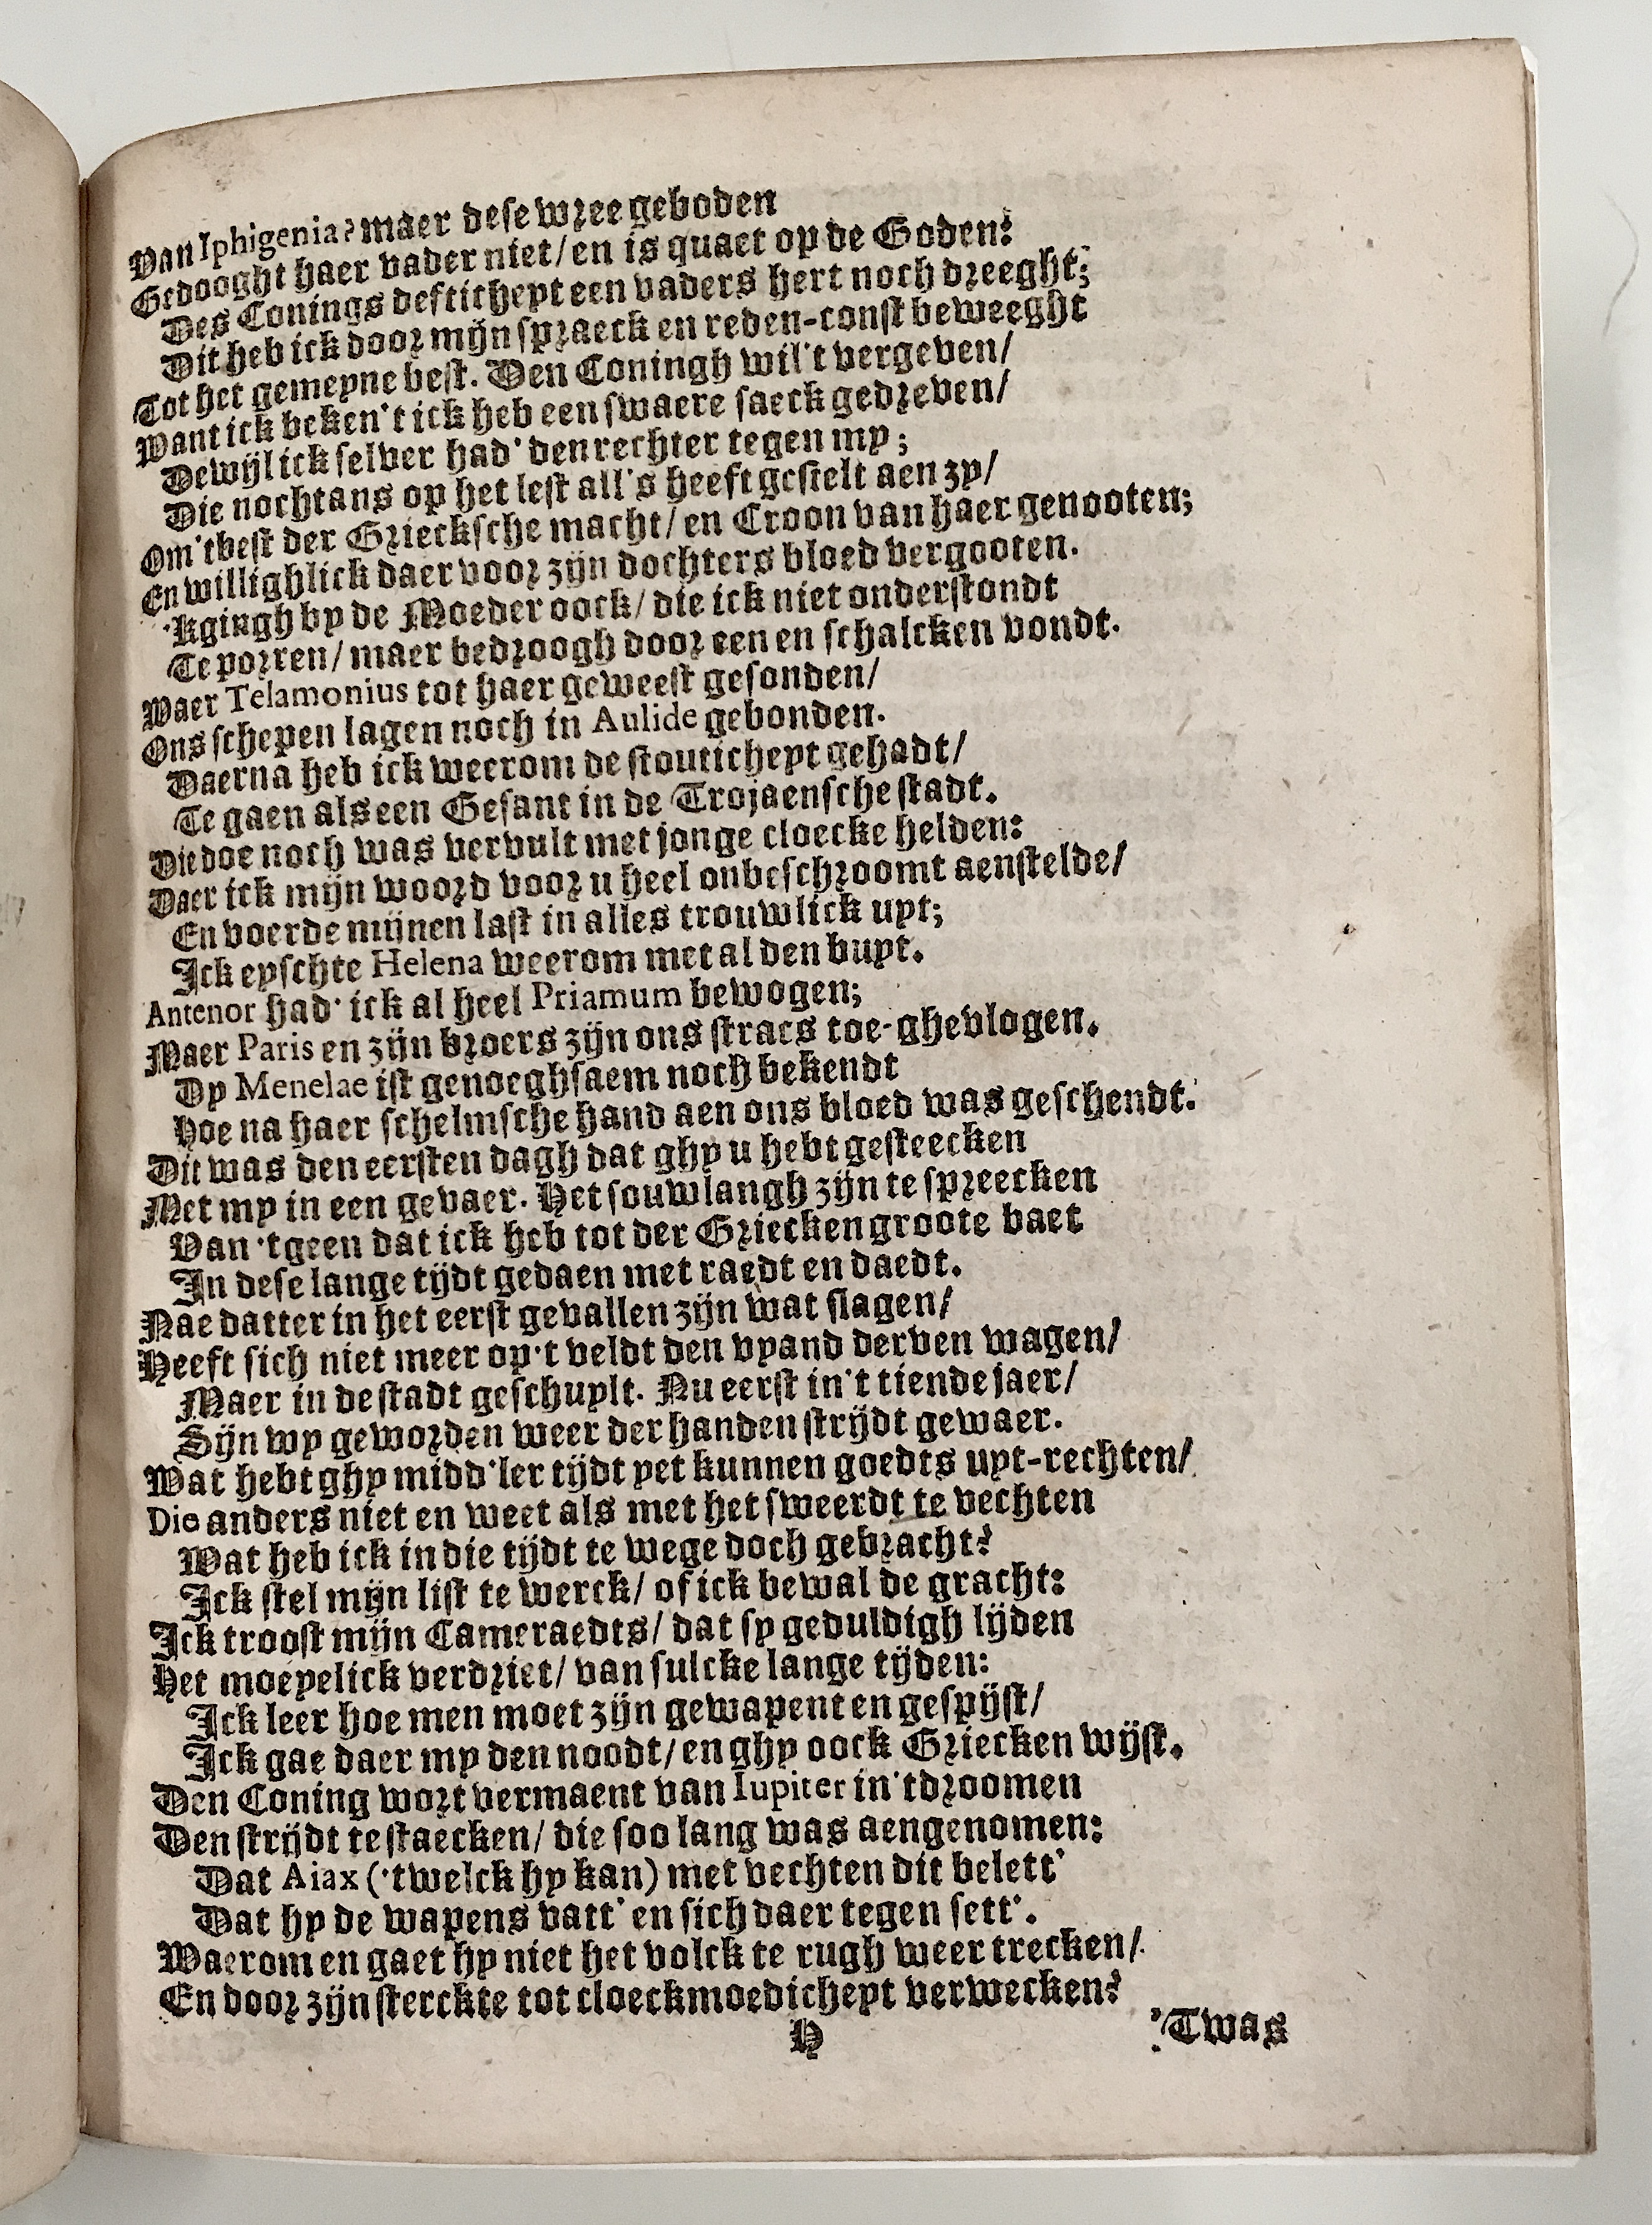 Van Iphigenia? maer dese wree geboden
Gedooght haer vader niet/ en is quaet op de Goden:
Des Conings deftichept een vaders hert noch dreeght;
Dit heb ick door mijn spraeck en reden-const beweeght
Tot het gemeyne best. Den Coningh wil't vergeven/
Want ick beken't ick heb een swaere saeck gedreven/
Dewijl ick selver had' den rechter tegen my;
Die nochtans op het lest all's heeft gestelt aen zy/
Om 'tbest der Griecksche macht/ en Croon van haer genooten;
En willighlick daer voor zijn dochters bloed vergooten.
'Kgingh by de Moeder oock/ die ick niet onderstondt
Te porren/ maer bedroogh door eenen schalcken vondt.
Waer Telamonius tot haer geweest gesonden/
Ons schepen lagen noch in Aulide gebonden.
Daerna heb ick weerom de stoutichept gehadt/
Te gaen als een Gesant in de Trojaensche stadt.
Die doe noch was vervult met jonge cloecke helden:
Daer ick mijn woord voor u heel onbeschroomt aenstelde/
En voerde mijnen last in alles trouwlick uyt;
Ick eyschte Helena weerom met al den buyt.
Antenor had' ick al heel Priamum bewogen;
Maer Paris en zijn broers zijn ons stracs toe-ghevlogen.
Dy Menelae ist genoeghsaem noch bekendt
Hoe na haer schelmsche hand aen ons bloed was geschendt.
Dit was den eersten dagh dat ghy u hebt gesteecken
Met my in een gevaer. Het souw langh zijn te spreecken
Van 'tgeen dat ick heb tot der Griecken groote baet
In dese lange tijdt gedaen met raedt en daedt.
Nae datter in het eerst gevallen zijn wat slagen/
Heeft sich niet meer op't veldt den vyand derven wagen/
Maer in de stadt geschuylt. Nu eerst in't tiende jaer/
Sijn wy geworden weer der handen strijdt gewaer.
Wat hebt ghy midd'ler tijdt yet kunnen goedts uyt-rechten/
Die anders niet en weet als met het sweerdt te vechten
Wat heb ick in die tijdt te wege doch gebracht?
Ick stel mijn list te werck/ of ick bewal de gracht:
Ick troost mijn Cameraedts/ dat sy geduldigh lijden
Het moeyelick verdriet/ van sulcke lange tijden:
Ick leer hoe men moet zijn gewapent en gespijst/
Ick gae daer my den noodt/ en ghy oock Griecken wijst.
Den Coning wort vermaent van Iupiter in 'tdroomen
Den strijdt te staecken/ die soo lang was aengenomen:
Dat Aiax ('twelck hy kan) met vechten dit belett'
Dat hy de wapens vatt' en sich daer tegen sett'.
Waerom en gaet hy niet het volck te rugh weer trecken/
En door zijn sterckte tot cloeckmoedichept verwecken?
H
'Twas